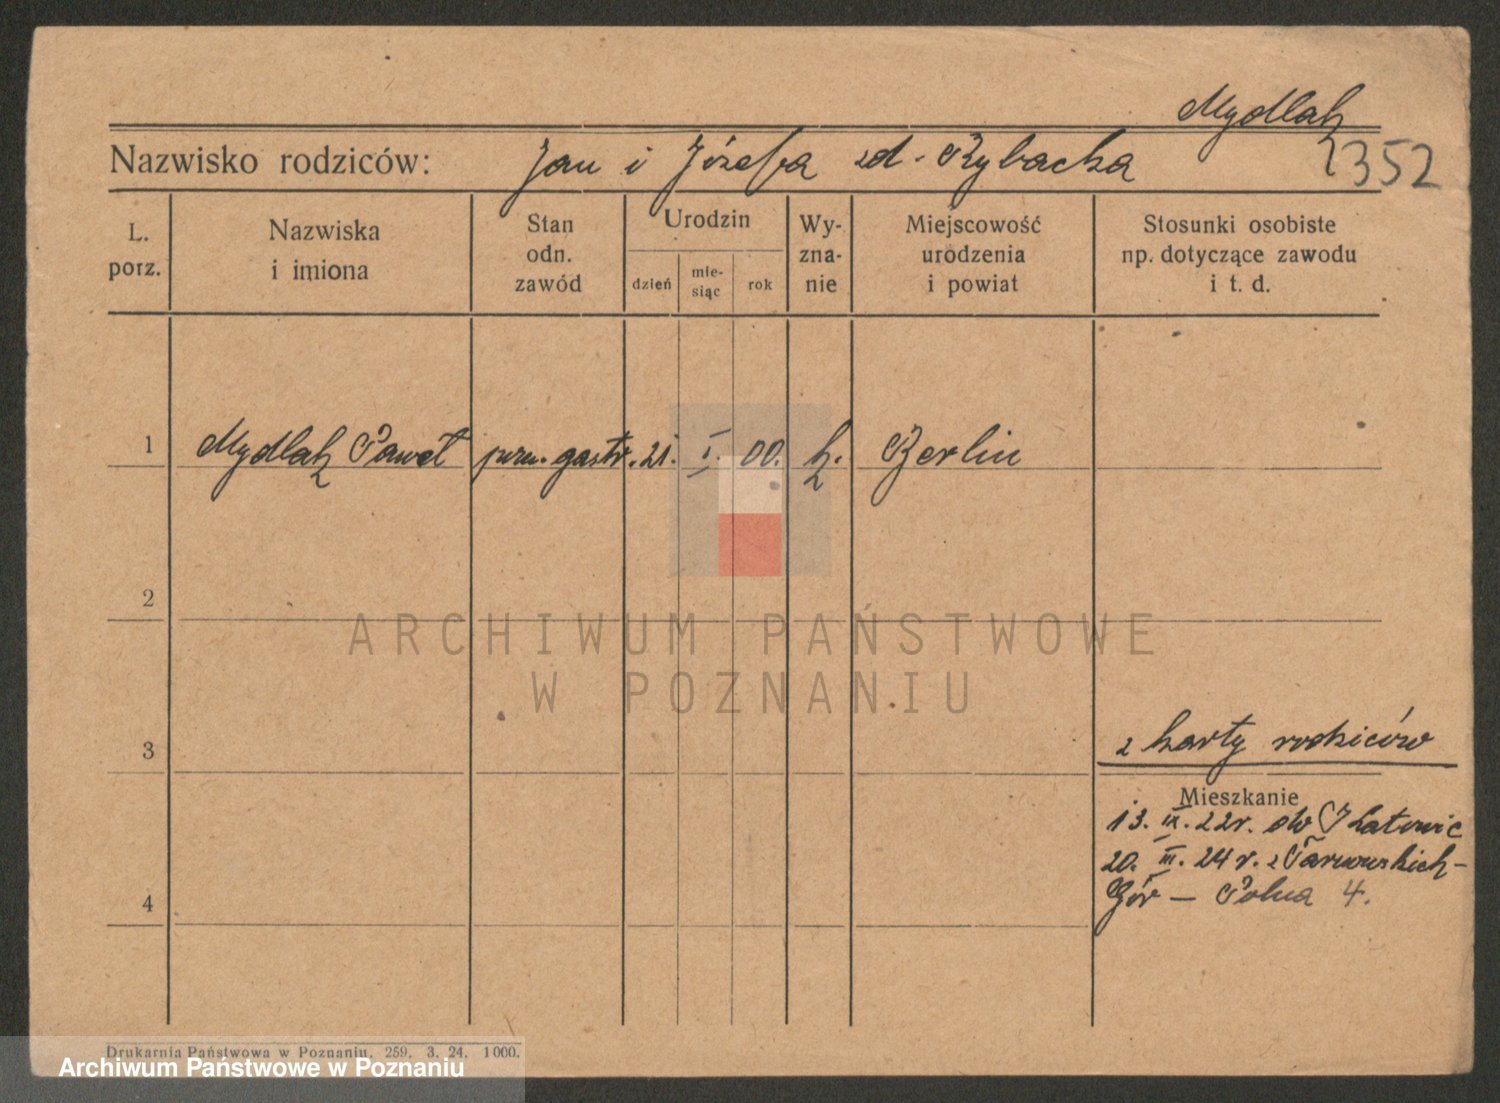 Mydlak
Nazwisko rodziców: Jan i Józefa zd. Rybacka
352
L. porz.
Nazwiska i imiona
Stan odn. zawód
Urodzin
dzień
mie-siąc
rok
Wy-zna-nie
Miejscowość urodzenia i powiat
Stosunki osobiste np. dotyczące zawodu i t. d.
1 Mydlak Paweł gastr. 21. I. 00. k. Berlin
2
3
z karty rodziców
Mieszkanie
13. IX. 22r. do Katowic
20. III. 24 r. z Tarnowskich-
Gór — Polna 4.
4
Drukarnia Państwowa w Poznaniu. 259. 3. 24. 1000.
ARCHIWUM PAŃSTWOWE
W POZNANIU
Archiwum Państwowe w Poznaniu